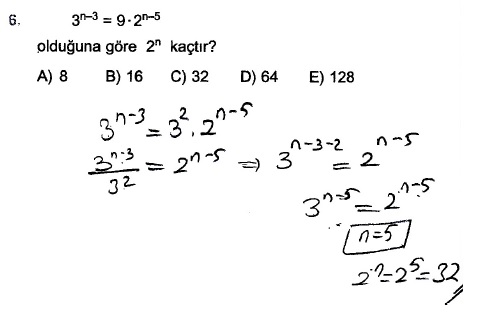 6. 3ⁿ⁻³ = 9·2ⁿ⁻⁵
olduğuna göre 2ⁿ kaçtır?
A) 8 B) 16 C) 32 D) 64 E) 128
3ⁿ⁻³ = 3² . 2ⁿ⁻⁵
3ⁿ⁻³/3² = 2ⁿ⁻⁵ ⇒ 3ⁿ⁻³⁻² = 2ⁿ⁻⁵
3ⁿ⁻⁵ = 2ⁿ⁻⁵
n=5
2ⁿ=2⁵=32